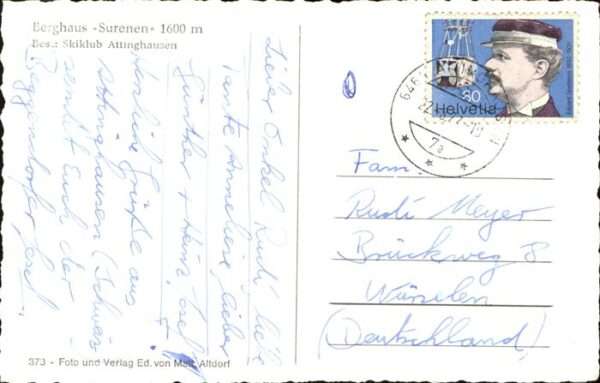 Berghaus «Surenen» 1600 m
Bes.: Skiklub Attinghausen
Lieber Onkel Rudi liebe
Tante Anneliese, lieber
Günther + Heinz
Herzliche Grüße aus
Attinghausen (Schweiz)
sendet Euch der
373 - Foto und Verlag Ed. von Matt, Altdorf
80
Helvetia
22. 77-18
7a
Fam.
Rudi Meyer
Brückweg 8
Würselen
(Deutschland)